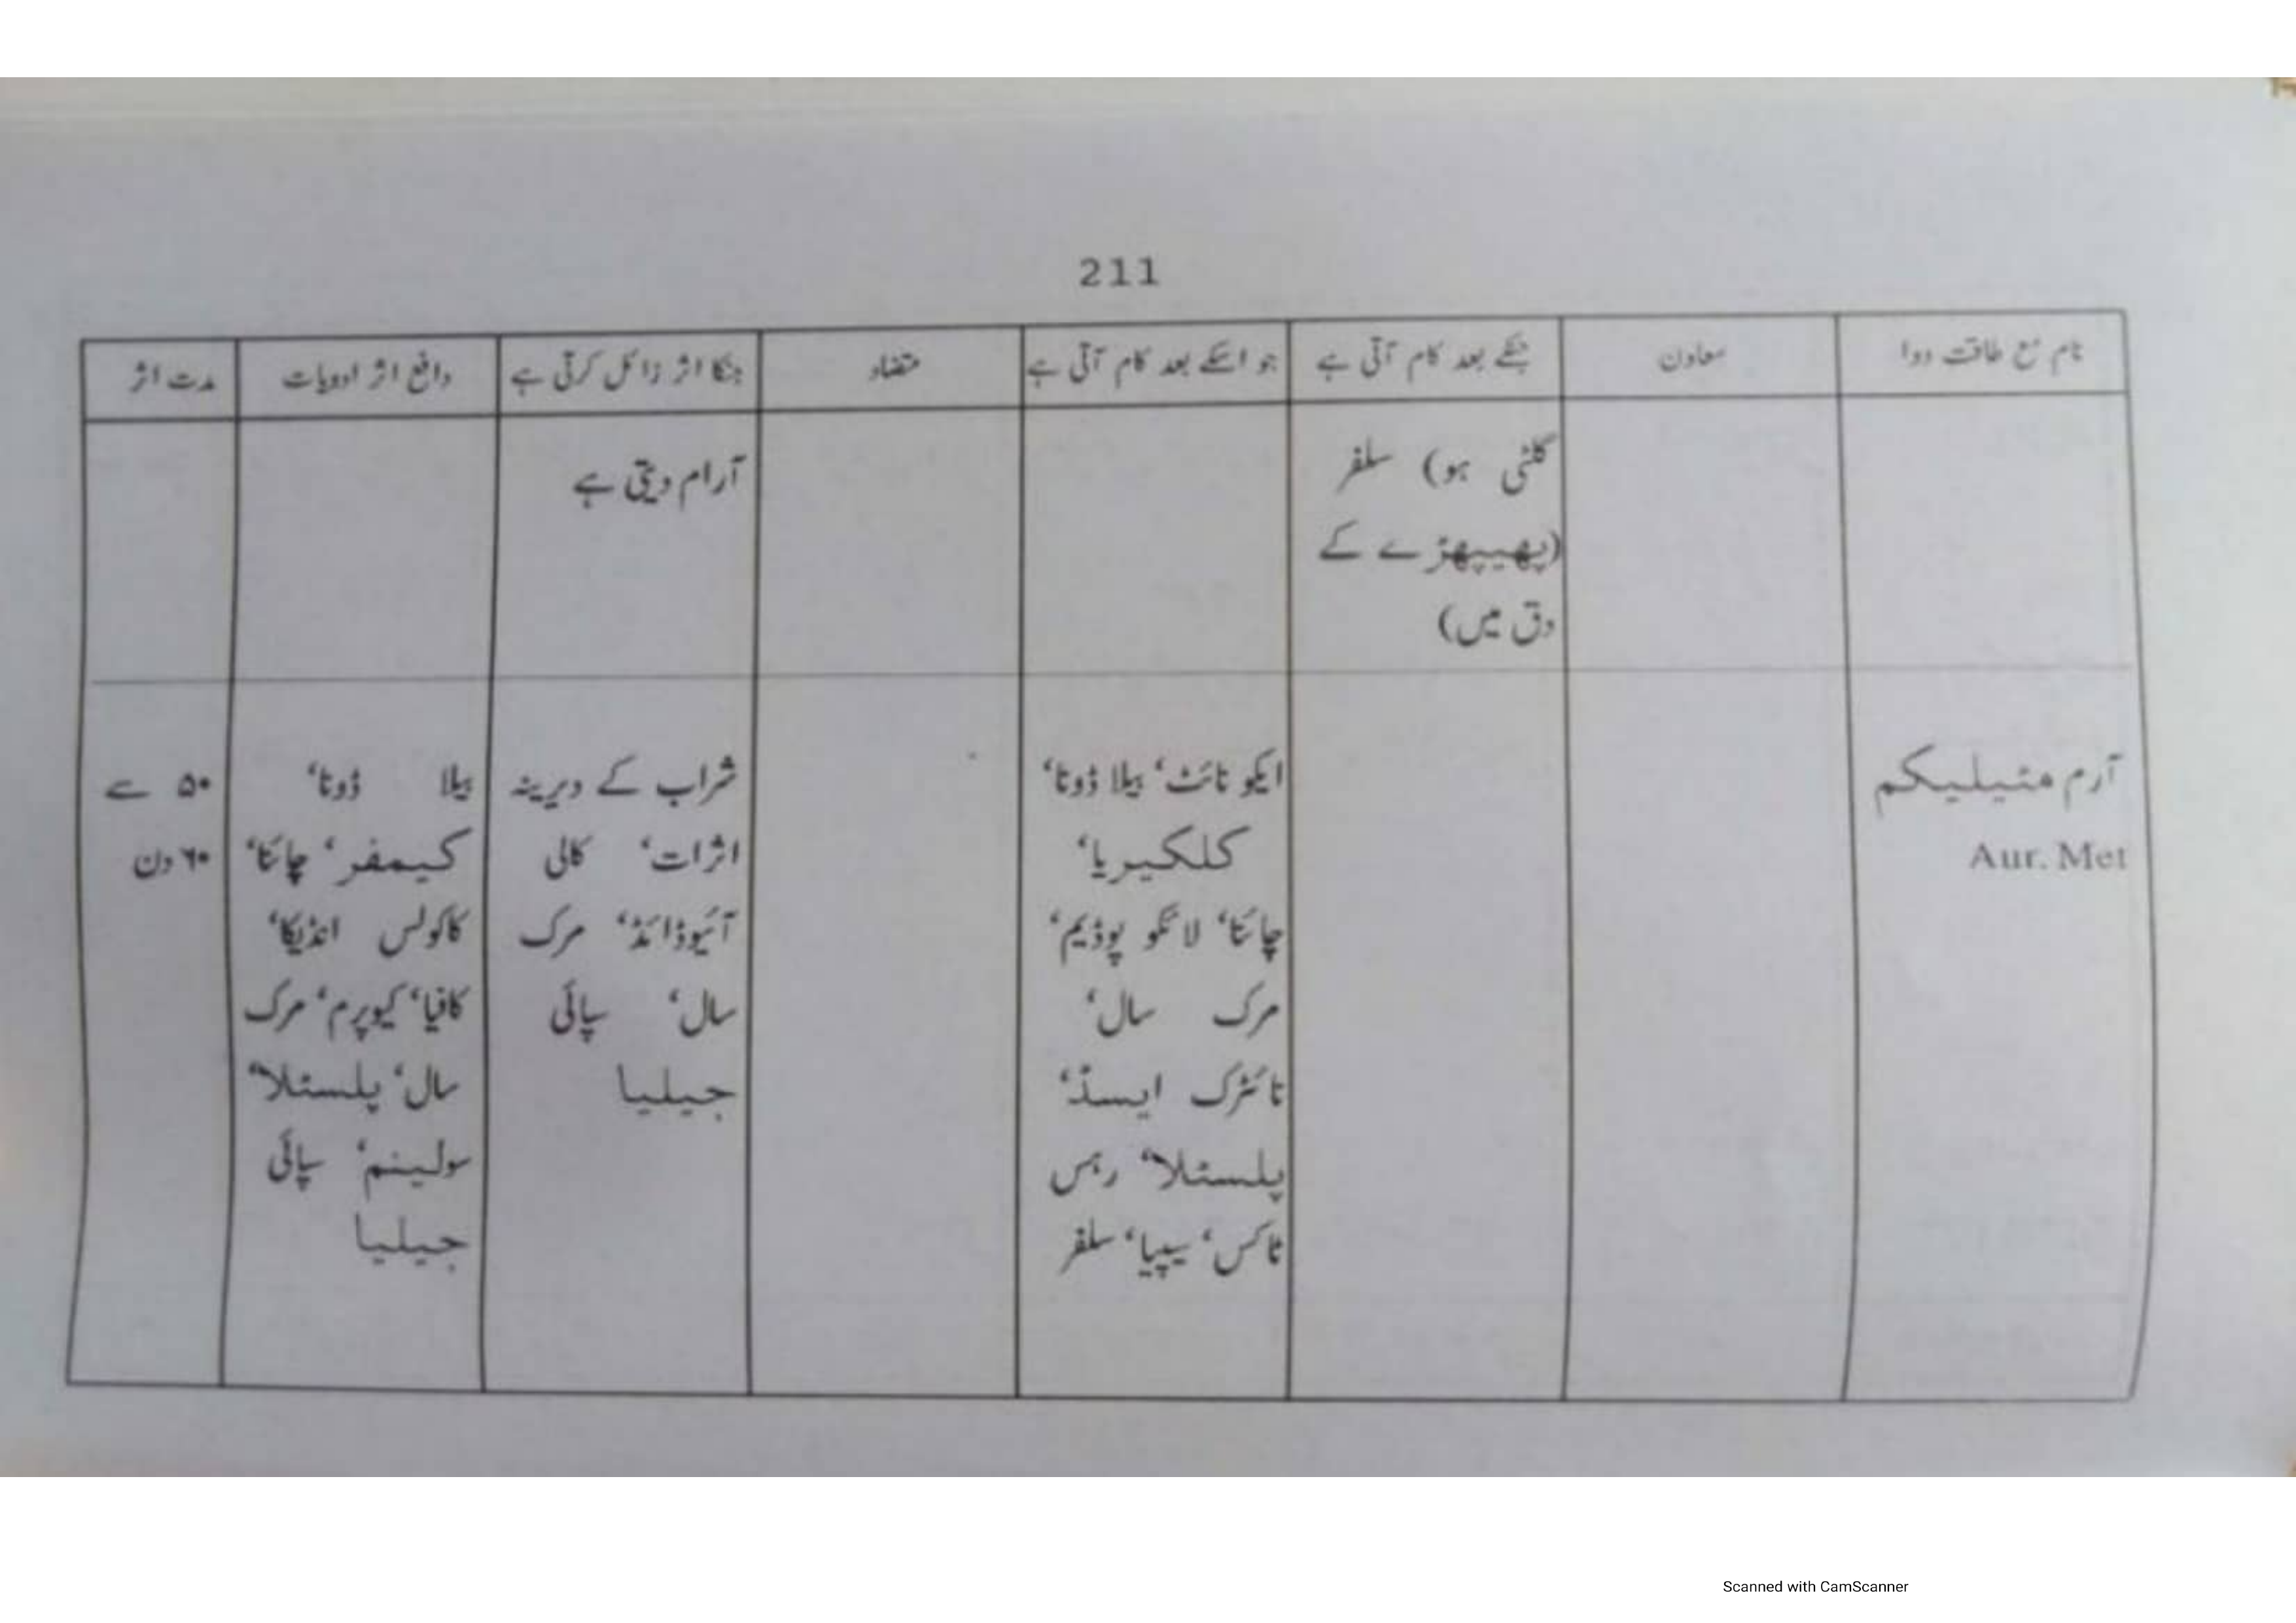 211
نام مع طاقت دوا
معاون
جنکے بعد کام آتی ہے
جو اسکے بعد کام آتی ہے
متضاد
جنکا اثر زائل کرتی ہے
دافع اثر ادویات
مدت اثر
گلٹی ہو) سلفر
(پھیپھڑے کے
دق میں)
آرام دیتی ہے
آرم مٹیلیکم
Aur. Met
ایکو نائٹ‘ بیلا ڈونا‘
کلکیریا‘
چائنا‘ لائکو پوڈیم‘
مرک سال‘
نائٹرک ایسڈ‘
پلسٹلا‘ رہس
ٹاکس‘ سیپیا‘ سلفر
شراب کے دیرینہ
اثرات‘ کالی
آئیوڈائڈ‘ مرک
سال‘ سپائی
جیلیا
بیلا ڈونا‘
کیمفر‘ چائنا‘
کاکولس انڈیکا‘
کافیا‘ کیوپرم‘ مرک
سال‘ پلسٹلا‘
سولینم‘ سپائی
جیلیا
۵۰ سے
۶۰ دن
Scanned with CamScanner